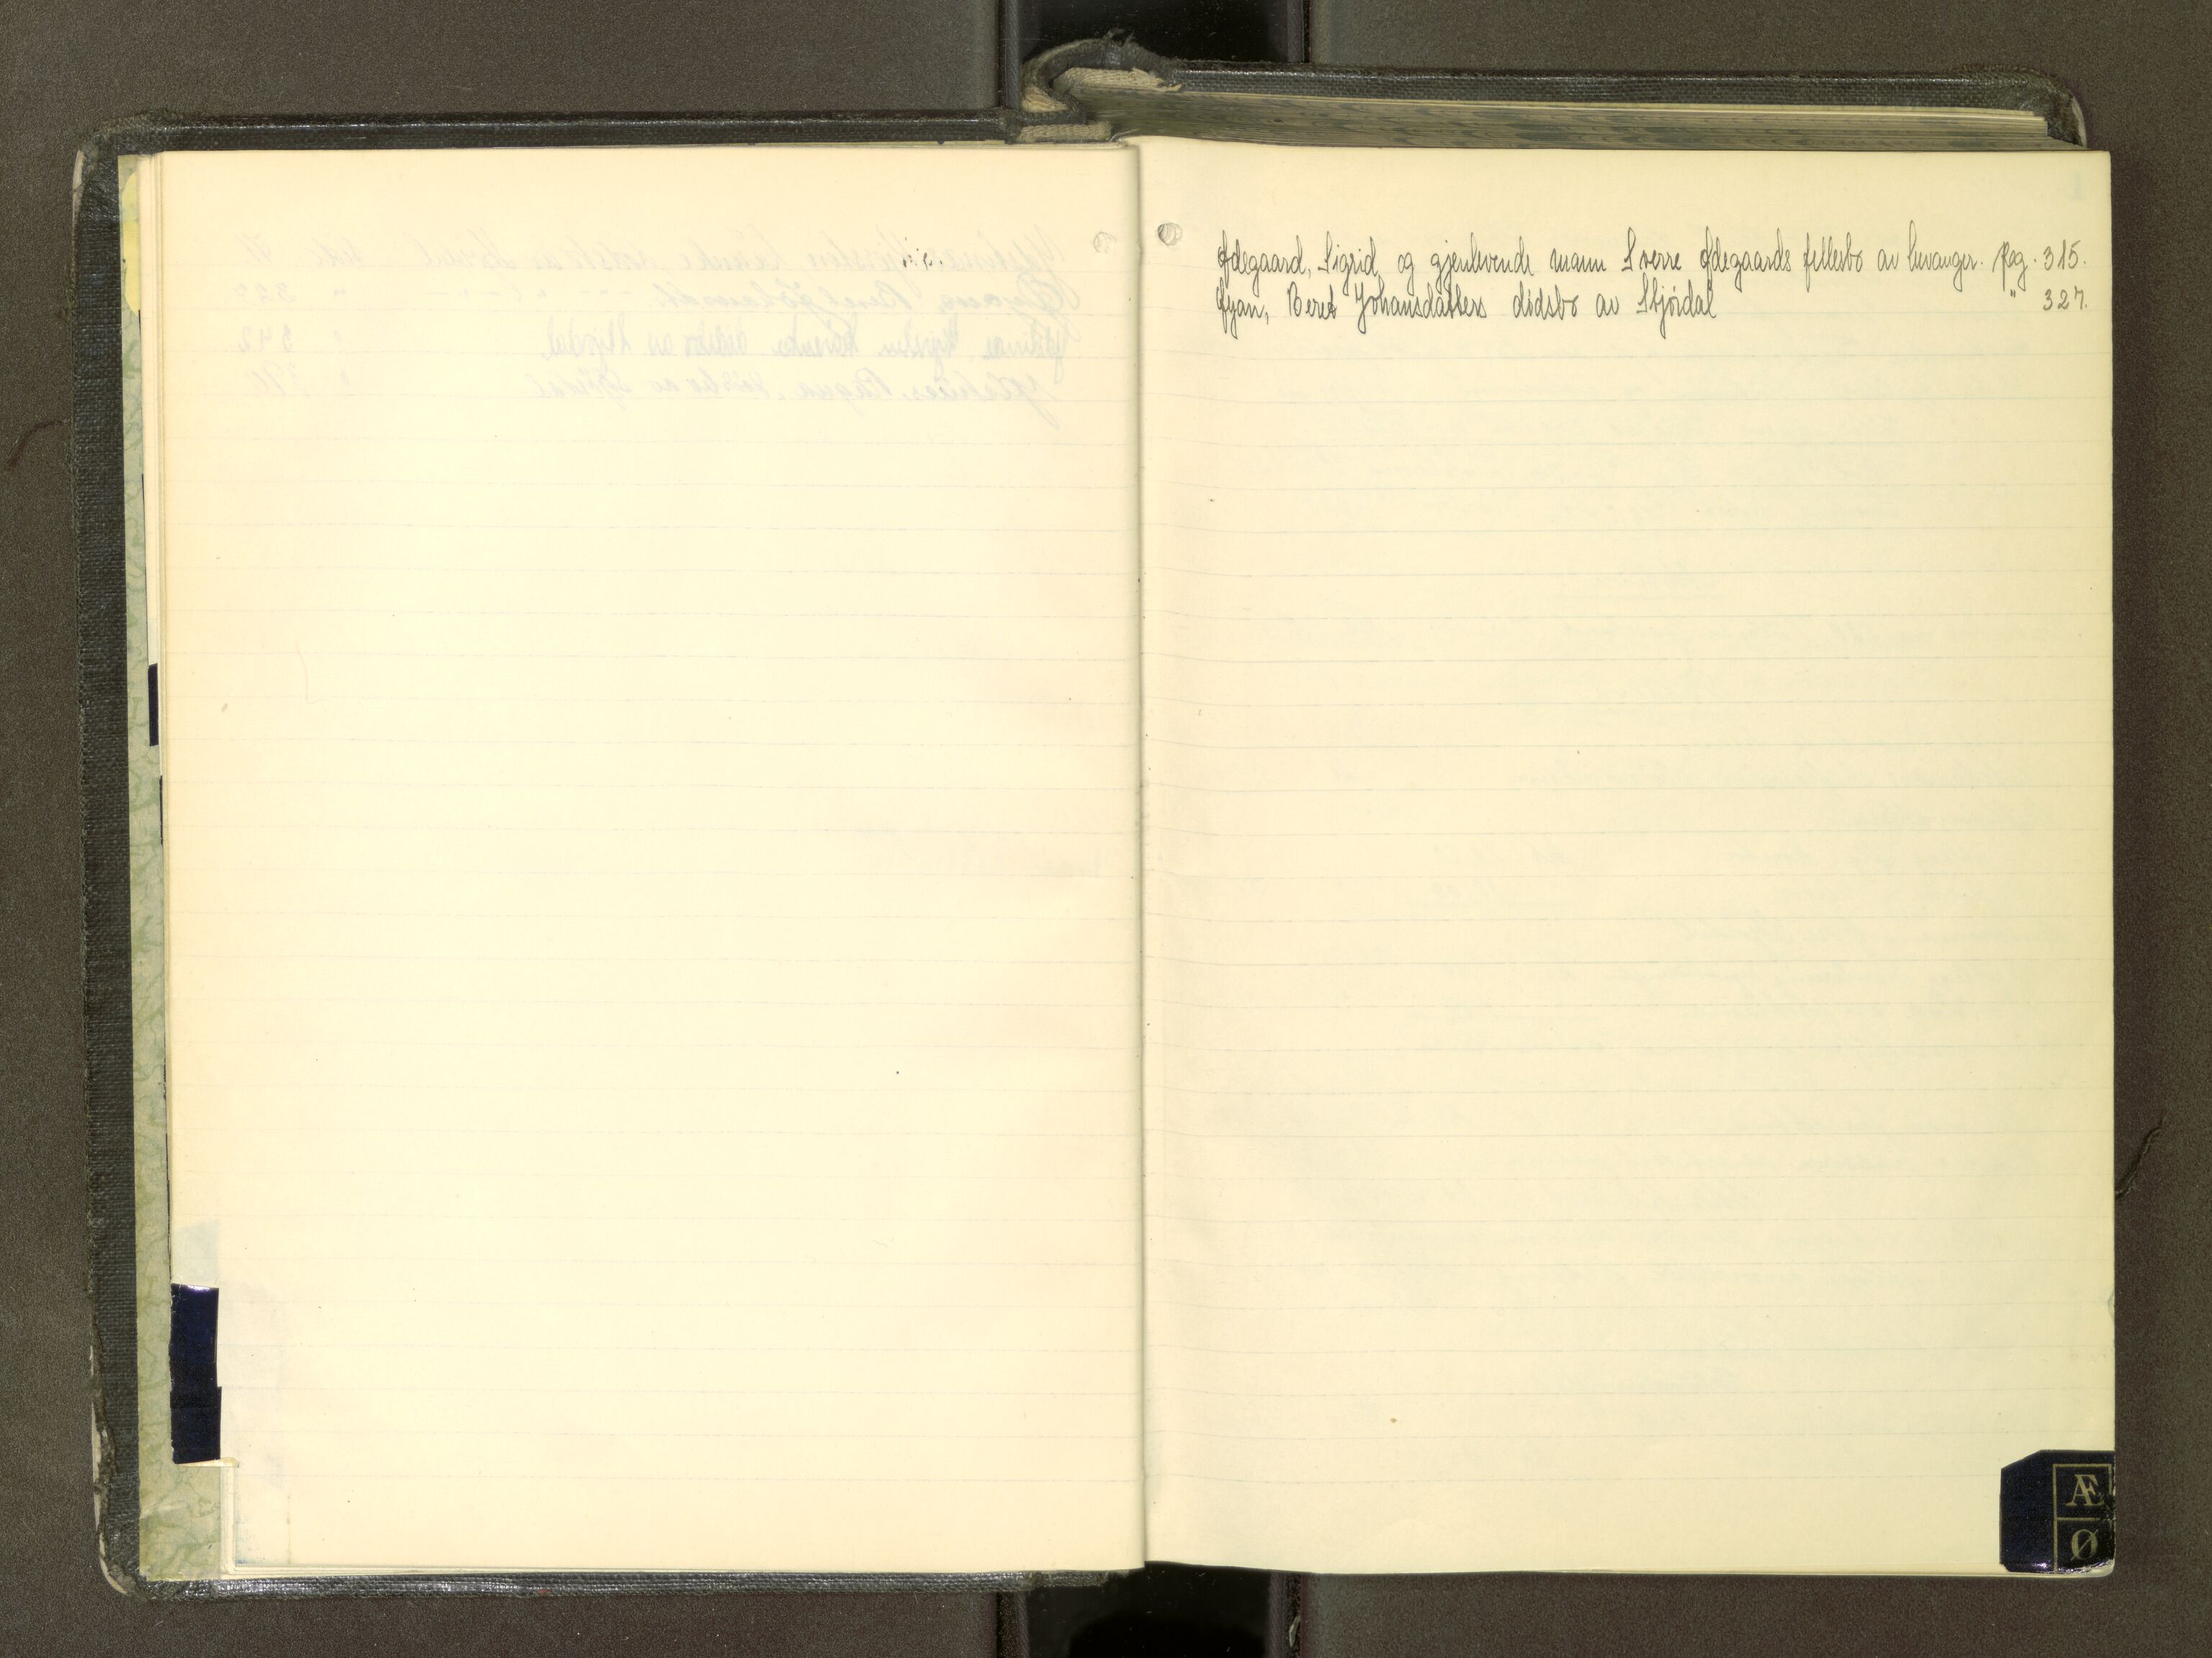 Ødegaard, Sigrid, og gjenlevende mann Sverre Ødegaards fellesbo av Levanger. Pag. 315.
Øyan, Beret Johansdatters dødsbo av Stjørdal " 327.
Æ
Ø